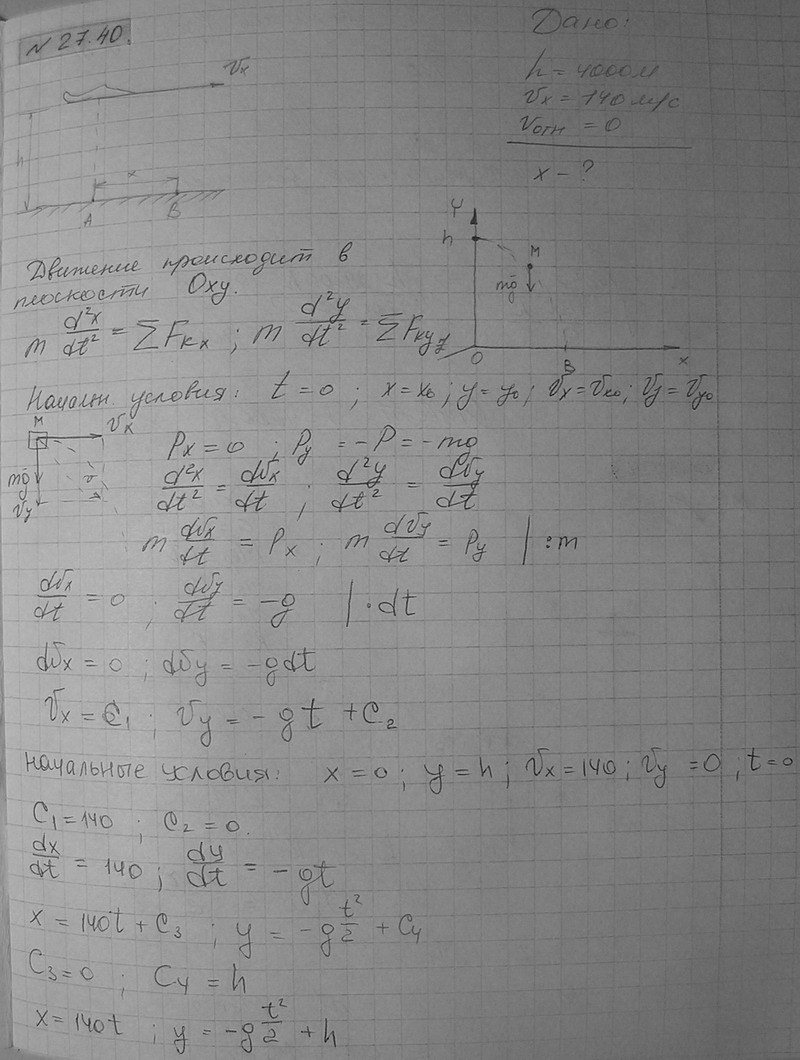 N 27.40.
Дано:
h = 4000м
Vx = 140 м/с
Vотн = 0
x - ?
Vx
h
x
A B
Y
h
M
mg
O B x
Движение происходит в
плоскости Oxy.
m d²x/dt² = ΣFкx ; m d²y/dt² = ΣFкy
Начальн условия: t = 0 ; x = x₀ ; y = y₀ ; Vx = Vx₀ ; Vy = Vy₀
M Vx
mg
Vy
v
Px = 0 ; Py = -P = -mg
d²x/dt² = dVx/dt ; d²y/dt² = dVy/dt
m dVx/dt = Px ; m dVy/dt = Py | :m
dVx/dt = 0 ; dVy/dt = -g | ·dt
dVx = 0 ; dVy = -gdt
Vx = C₁ ; Vy = -gt + C₂
Начальные условия: x = 0 ; y = h ; Vx = 140 ; Vy = 0 ; t = 0
C₁ = 140 ; C₂ = 0.
dx/dt = 140 ; dy/dt = -gt
x = 140t + C₃ ; y = -g t²/2 + C₄
C₃ = 0 ; C₄ = h
x = 140t ; y = -g t²/2 + h